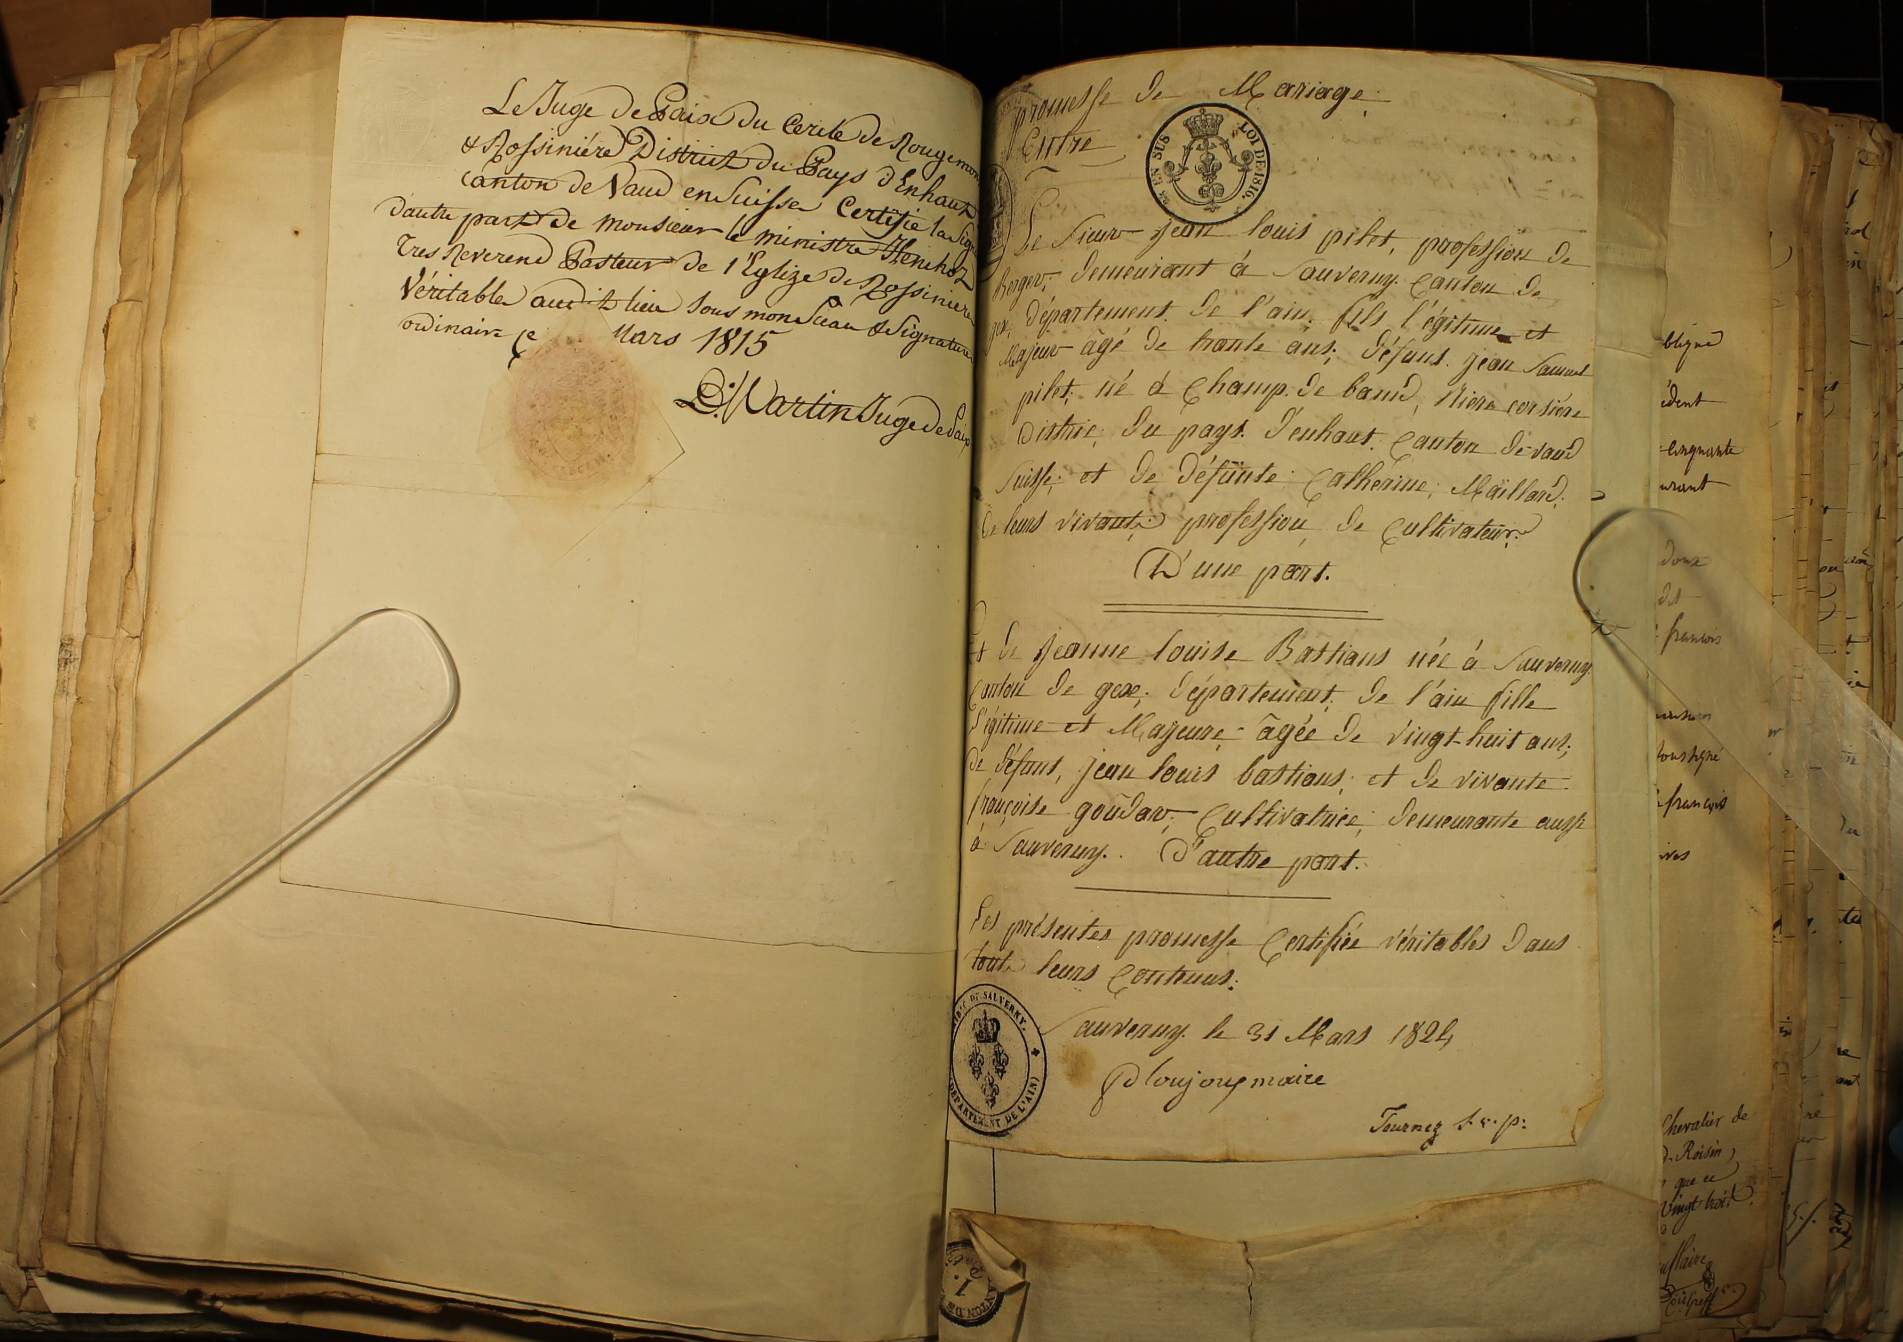 Le Juge de Paix du Cercle de Rougemon
& Rossiniére District du Pays d'Enhaut
canton de Vaud en Suisse Certifie la Sig
d'autre part de monsieur le ministre Henchoz
Tres Reverend Pasteur de l'Eglize de Rossiniere
Véritable audit lieu sous mon Sceau & Signature
ordinaire ce Mars 1815
Martin Juge de Paix
promesse de Mariage.
Entre
EN SUS LOI DE 1816.
Le Sieur jean louis pilet, profession de
Berger, demeurant à Sauverny. Canton de
gex, département de l'ain, fils l'égitime et
Majeur âgé de trante ans, défunt jean Samuel
pilet, né à Champ. de
District du pays. d'enhaut. Canton de vaud
Suisse, et de défunte Cathérine, Maillard.
de leurs vivant, profession de Cultivateur.
D'une part.
Et de jeanne louise Bastians née à Sauverny.
Canton de gex, département, de l'ain fille
l'égitime et Majeure, âgée de vingt-huit ans,
de défunt, jean louis bastians, et de vivante
françoise goûdar, Cultivatrice, demeurante aussi
à Sauverny. D'autre part.
Les présentes promesse Certifiée véritables dans
tout leurs Contenus.
Sauverny. le 31 Mars 1824
maire
Tournez s. v. p.
MAIRIE DE SALVERNY.
DEPARTEMENT DE L'AIN
obligné
cédent
cinquante
urant
doux
des
francois
soussigné
françois
Chevalier de
Roisin,
que ce
Vingt trois
CANTON DE
1.